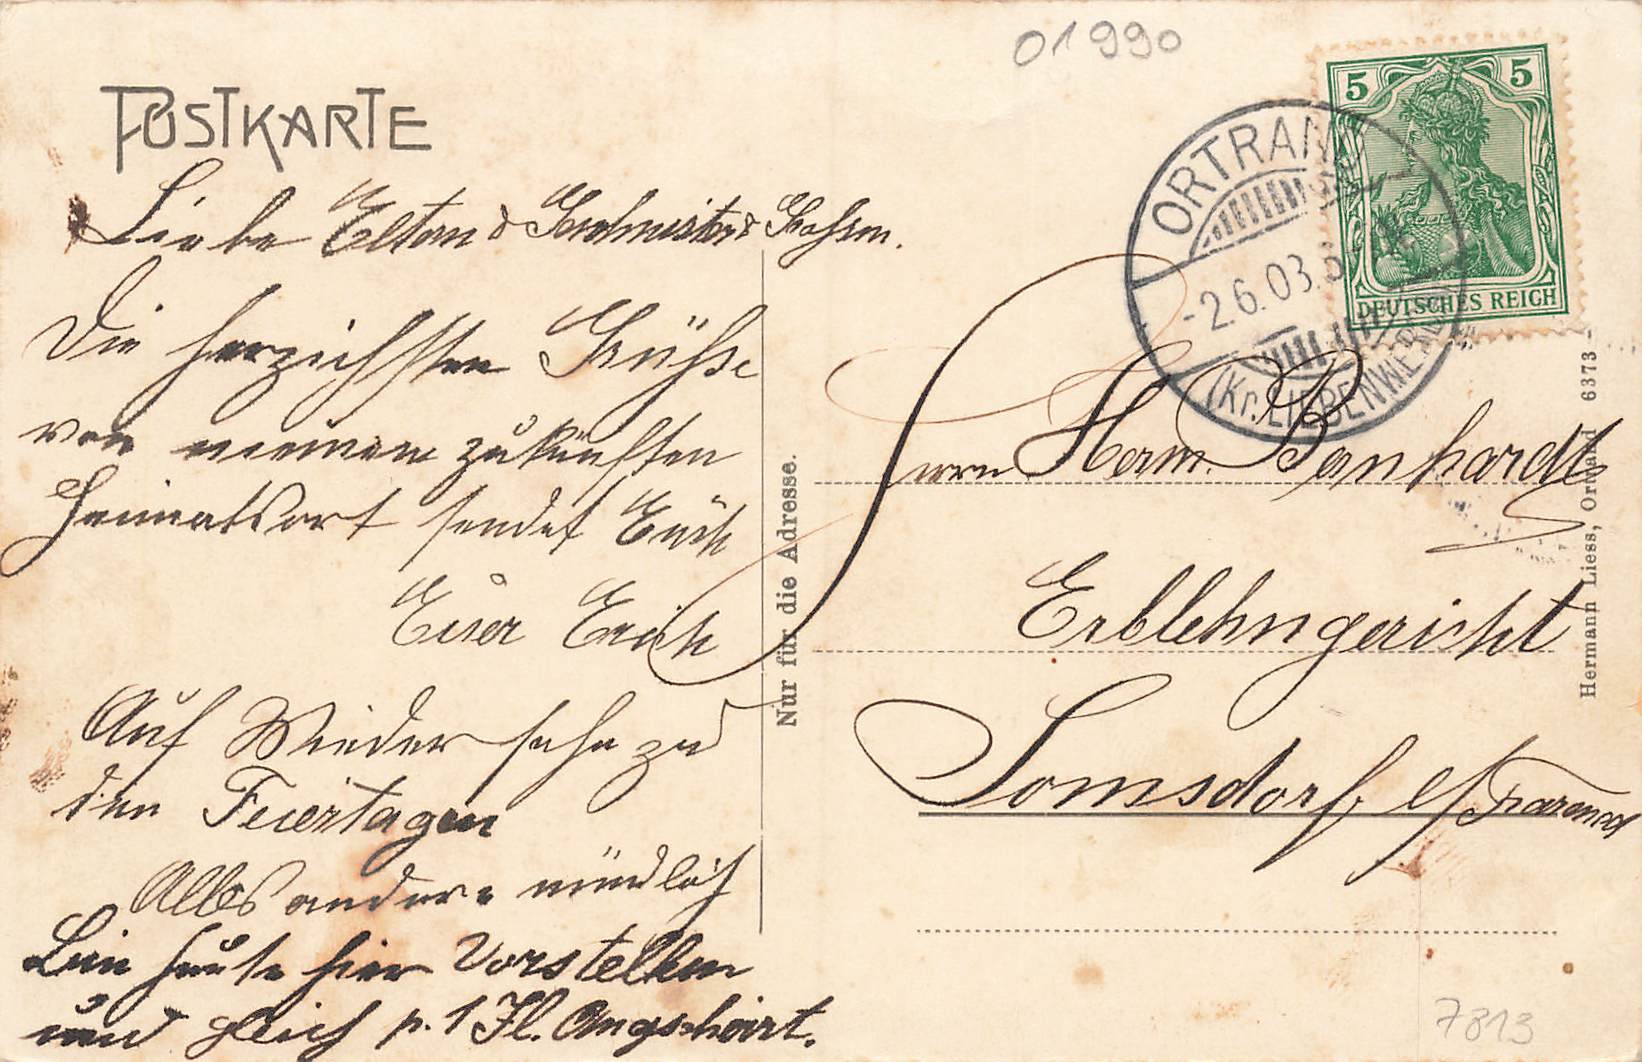 01990
POSTKARTE
5 5
DEUTSCHES REICH
ORTRAND
-2.6.03.
(Kr. LIEBENWERDA)
Liebe Eltern & Geschwister &
Die herzlichsten Grüsse
von meinem zukünften
Heimatsort sendet Euch
Euer Erich
Auf Wiedersehn zu
den Feiertagen
Alles andere mündlich
Bin heute hier Vorstellen
und gleich p. 1 Jl. Angschoirt.
Nur für die Adresse.
Herrn Herm. Bernhardt
Erblehngericht
Somsdorf b/Tharandt
Hermann Liess, Ortrand 6373
7813